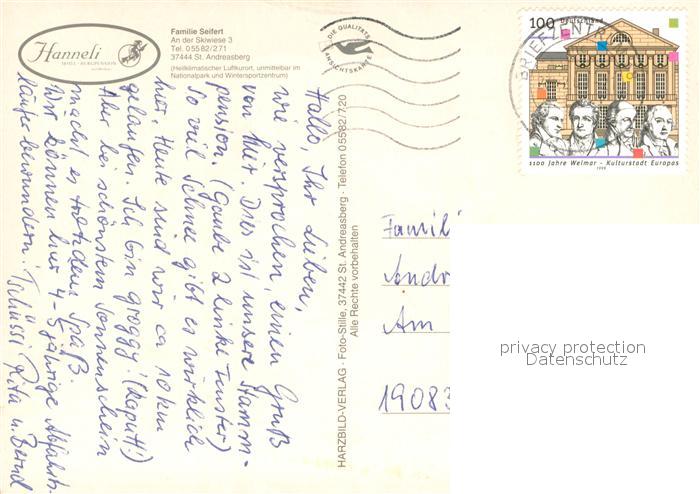 Hanneli
Familie Seifert
An der Skiwiese 3
Tel. 05582/271
37444 St. Andreasberg
(Heilklimatischer Luftkurort, unmittelbar im
Nationalpark und Wintersportzentrum)
DIE QUALITÄTS
ANSICHTSKARTE
BRIEFZEN
100 Deutschland
1100 Jahre Weimar - Kulturstadt Europas
1999
Hallo, Ihr Lieben,
wie versprochen, einen Gruß
von hier. Dies ist unsere Stamm-
pension. (Gaube 2 linke Fenster)
So viel Schnee gibt es wirklich
hier. Heute sind wir ca 10 km
gelaufen. Ich bin groggy! (kaputt!)
Aber bei schönstem Sonnenschein
macht es trotzdem Spaß.
Wir können hier 4-5jährige Abfahrts-
läufer bewundern. Tschüssi Rita u. Bernd
HARZBILD-VERLAG · Foto-Stille, 37442 St. Andreasberg · Telefon 05582/720
Alle Rechte vorbehalten
Famili
Andr
Am
19083
privacy protection
Datenschutz